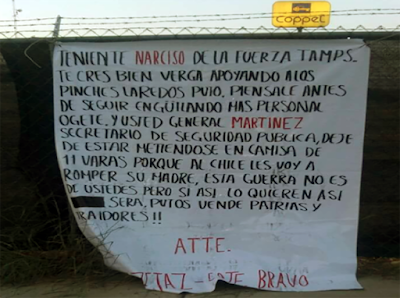 coppel
TENIENTE NARCISO DE LA FUERZA TAMPS.
TE CRES BIEN VERGA APOYANDO A LOS
PINCHES LAREDOS PUTO, PIENSALE ANTES
DE SEGUIR ENGUILLANDO HAS PERSONAL
OGETE. Y USTED GENERAL MARTINEZ
SECRETARIO DE SEGURIDAD PUBLICA, DEJE
DE ESTAR METIENDOSE EN CAMISA DE
11 VARAS PORQUE AL CHILE LES VOY A
ROMPER SU MADRE, ESTA GUERRA NO ES
DE USTEDES PERO SI ASI LO QUIEREN ASI
SERA, PUTOS VENDE PATRIAS Y
TRAIDORES!!
ATTE.
BRAVO